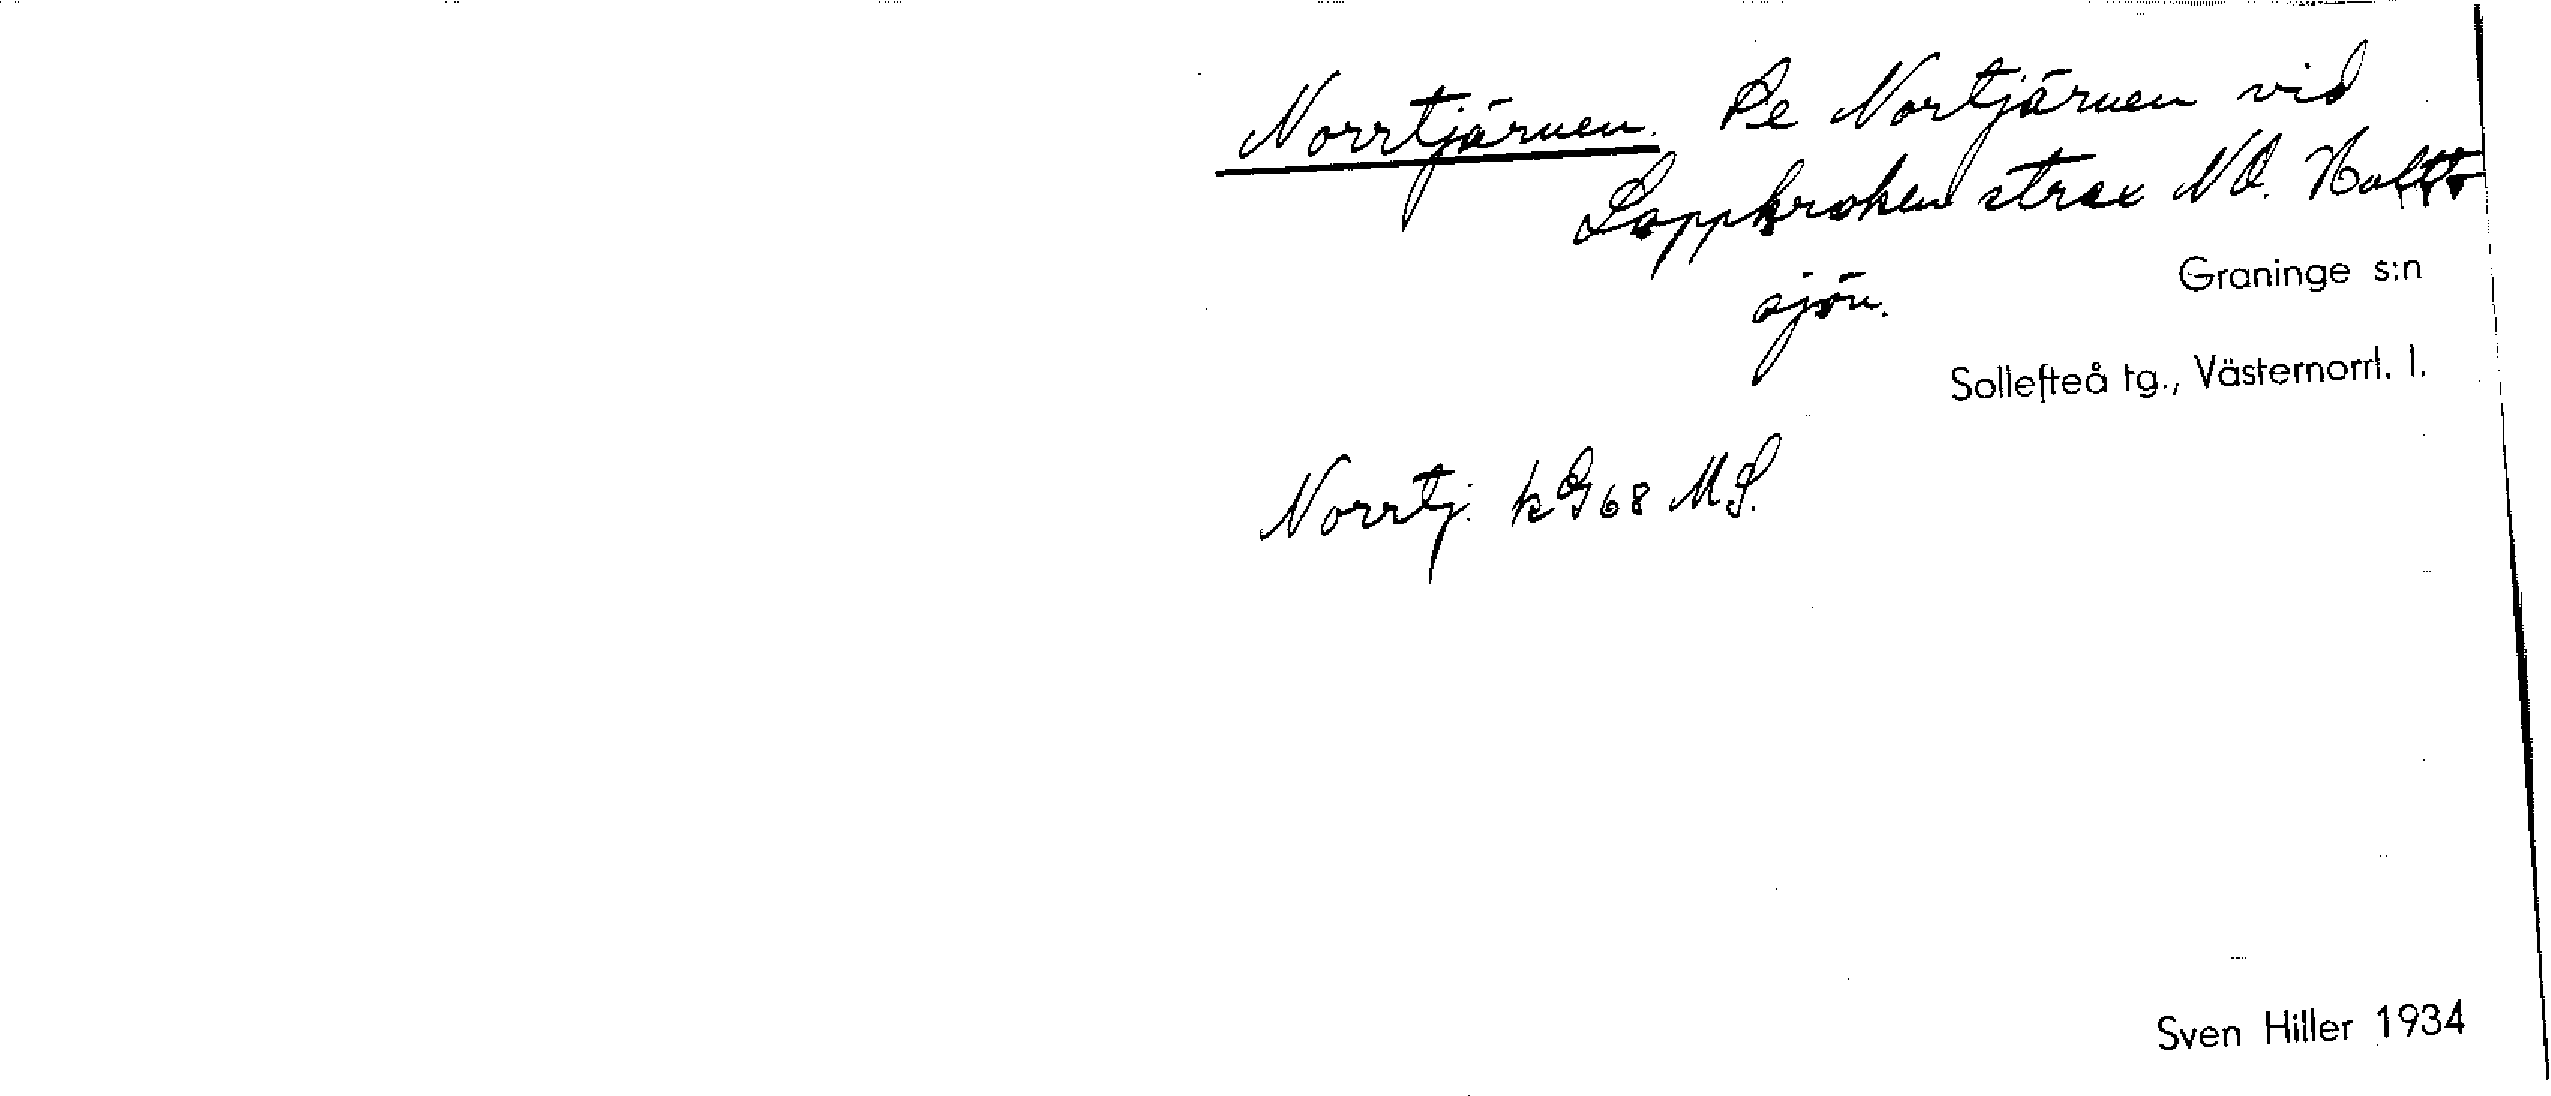 Norrtjärnen. Se Nortjärnen vid
Lappkroken strax NO. Holt-
sjön.
Graninge s:n
Sollefteå tg., Västernorrl. l.
Norrtj. kG68 MS.
Sven Hiller 1934